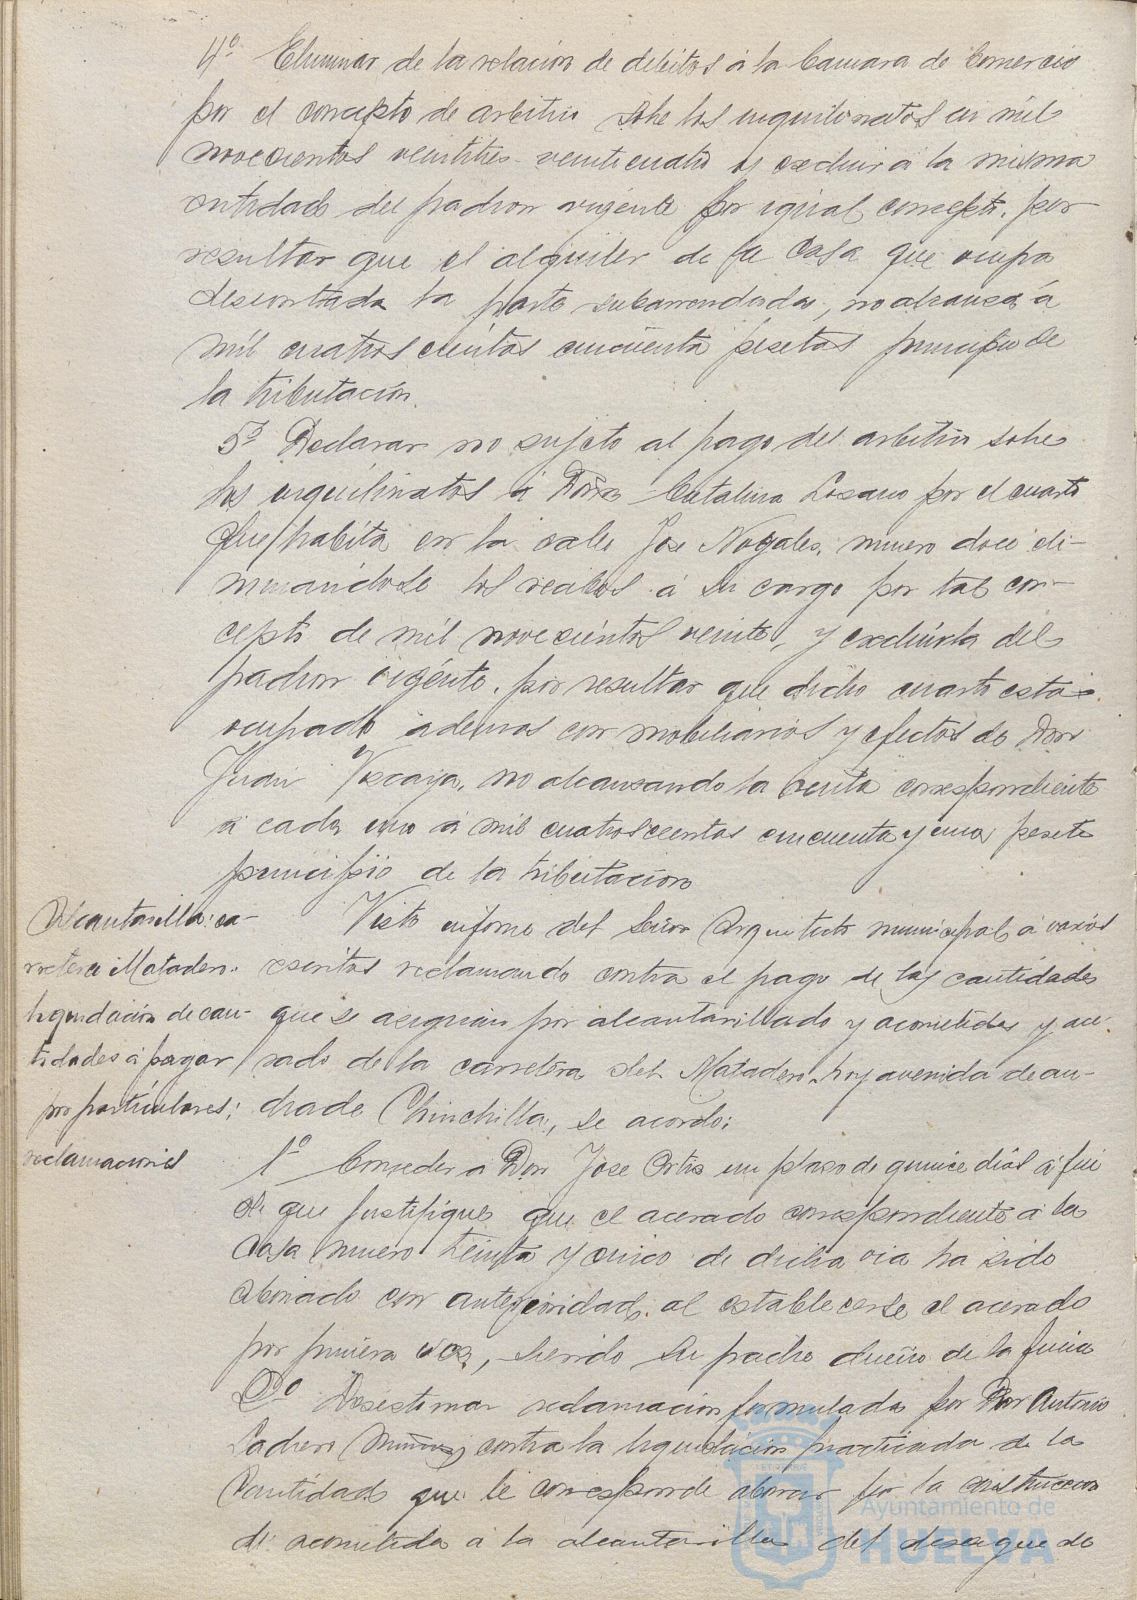 4º Eliminar de la relacion de debitos á la Camara de Comercio
por el concepto de arbitrio sobre los inquilinatos en mil
novecientos veintitres-veinticuatro y excluir á la misma
entidad del padron vigente por igual concepto, por
resultar que el alquiler de la casa que ocupa
descontada la parte subarrendada, no alcanza á
mil cuatrocientos cincuenta pesetas principio de
la tributación.
5º Declarar no sujeto al pago del arbitrio sobre
los inquilinatos á Doña Catalina Lozano por el cuarto
que habita en la calle Jose Nogales, numero doce eli-
minandose los recibos á su cargo por tal con-
cepto de mil novecientos veinte, y excluirla del
padron vigente, por resultar que dicho cuarto está
ocupado ademas con mobiliarios y efectos de Don
Juan Vizcaya, no alcanzando la renta correspondiente
á cada uno á mil cuatrocientas cincuenta y una peseta
principio de la tributacion
Alcantarilla ca-
rretera Matadero.
liquidación de can-
tidades á pagar
por particulares;
reclamaciones
Visto informe del Señor Arquitecto municipal, á varios
escritos reclamando contra el pago de las cantidades
que se asignan por alcantarillado y acometidas y ace-
rado de la carretera del Matadero, hoy avenida de An-
drade Chinchilla, se acordó:
1º Conceder á Don Jose Ortiz un plazo de quince dias á fin
de que justifique que el acerado correspondiente á la
casa numero treinta y cinco de dicha via ha sido
abonado con anterioridad, al establecerse el acerado
por primera vez, siendo su padre dueño de la finca
2º Desestimar reclamacion formulada por Don Antonio
Ladrero Muñoz, contra la liquidacion practicada de la
cantidad que le corresponde abonar por la construccion
de acometida á la alcantarilla del desague de
Ayuntamiento de
HUELVA